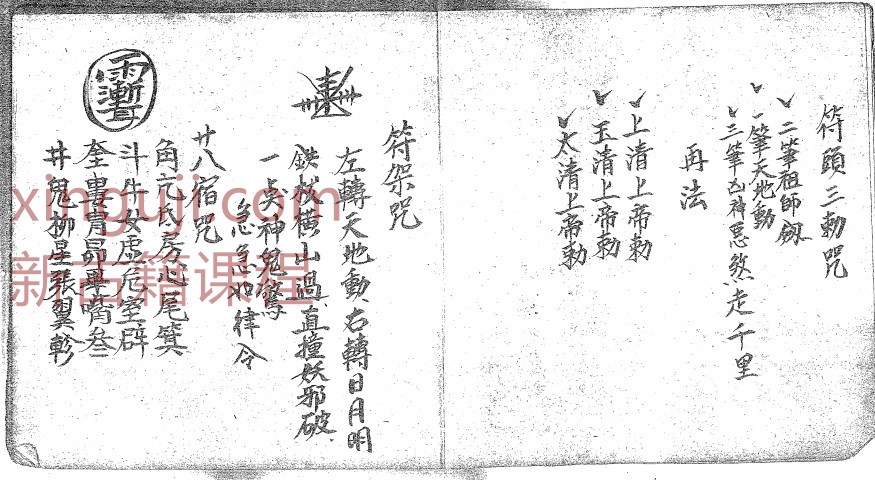 符頭三勅咒
二筆祖師劔
一筆天地動
三筆凶神惡煞走千里
再法
上清上帝勅
玉清上帝勅
太清上帝勅
符架咒
左轉天地動、右轉日月明
鉄板橫山過、直撞妖邪破
一尖神鬼驚
急急如律令
廿八宿咒
角亢氐房心尾箕
斗牛女虛危室辟
奎婁胃昴畢嘴叁
井鬼柳星張翼軫
xingujicom
新古籍课程